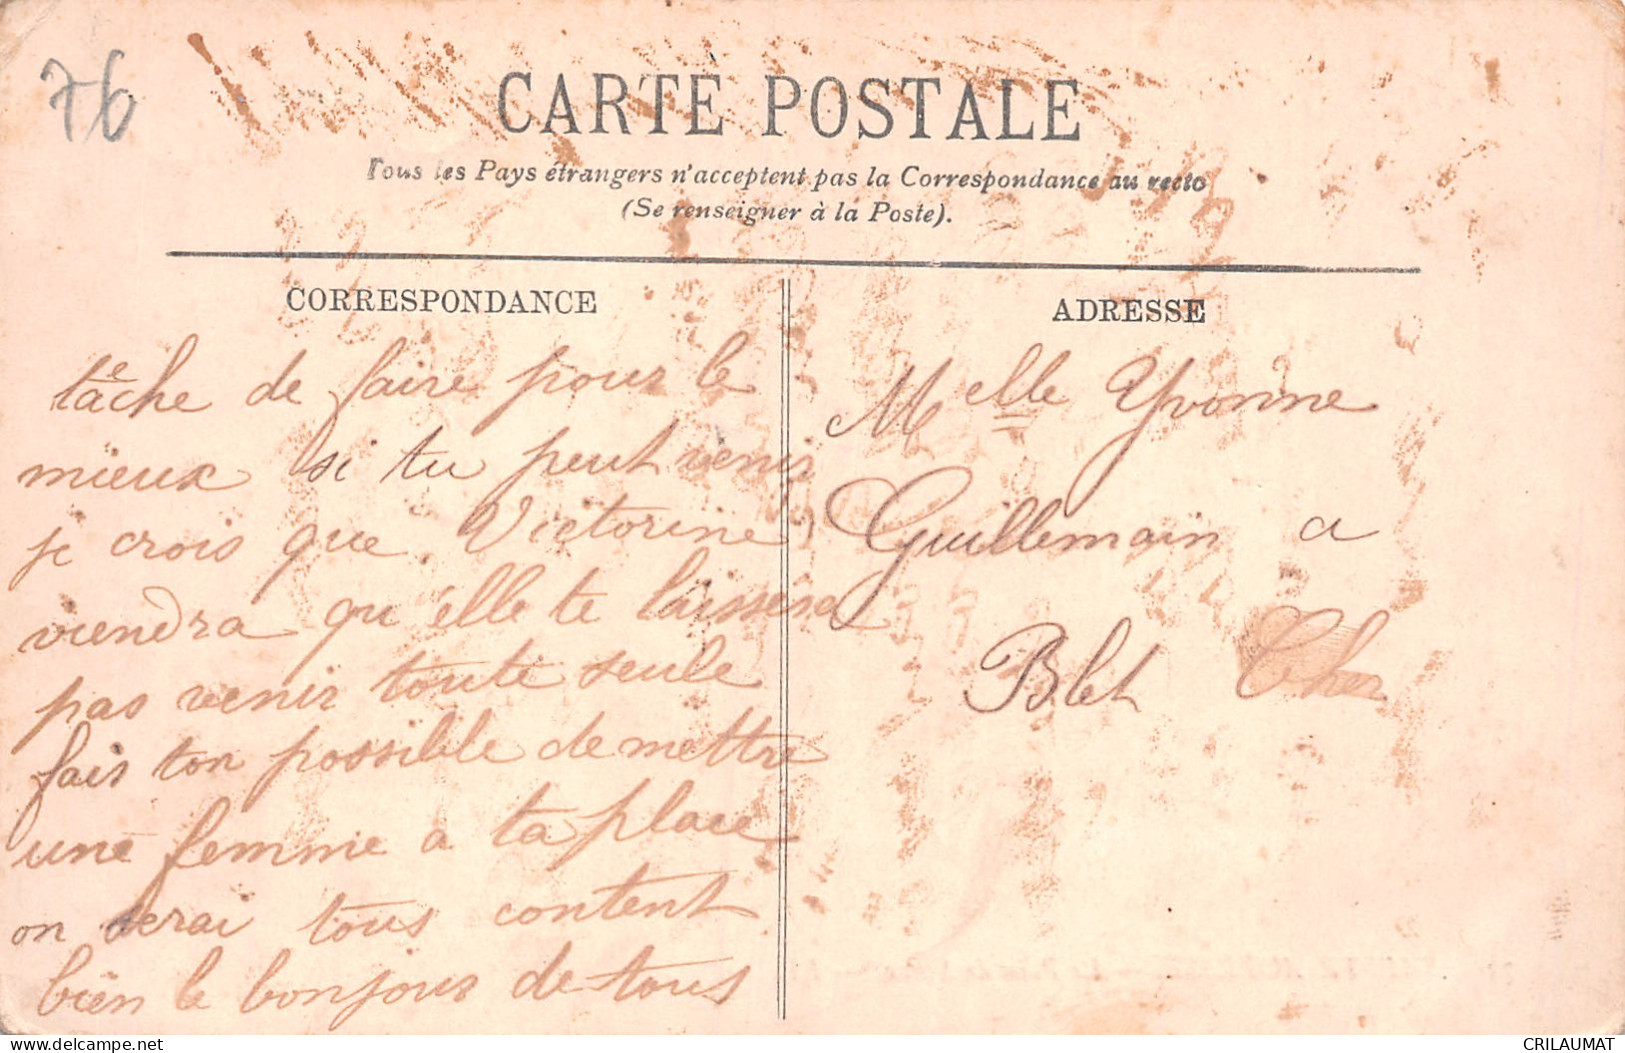 76
CARTE POSTALE
Tous les Pays étrangers n'acceptent pas la Correspondance au recto
(Se renseigner à la Poste).
CORRESPONDANCE
tâche de faire pour le
mieux si tu peut venir
je crois que Victorine
viendra qu'elle te laissera
pas venir toute seule
fais ton possible de mettre
une femme a ta place
on serai tous content
bien le bonjour de tous
ADRESSE
Melle Yvonne
Guillemain a
Blet Cher
delcampe.net
CRILAUMAT